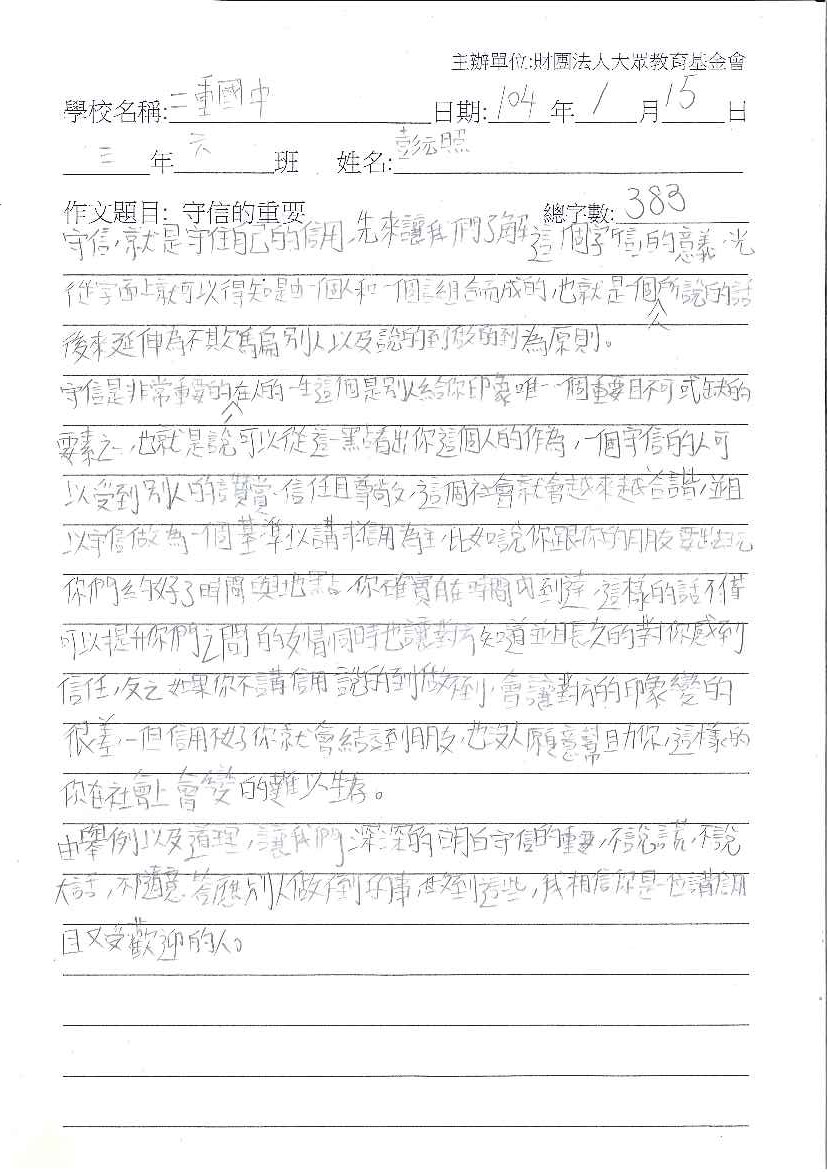 主辦單位:財團法人大眾教育基金會
學校名稱: 二重國中 日期: 104 年 1 月 15 日
三 年 六 班 姓名: 彭云照
作文題目: 守信的重要 總字數: 383
守信,就是守住自己的信用,先來讓我們了解這個字「信」的意義,光
從字面上就可以得知是由一個人和一個言組合而成的,也就是一個人所說的話
後來延伸為不欺篤騙別人以及說的到做的到為原則。
守信是非常重要的在人的一生這個是別人給你印象唯一一個重要且不可或缺的
要素之一,也就是說可以從這一點看出你這個人的作為,一個守信的人可
以受到別人的讚賞、信任且尊敬,這個社會就會越來越答諧,並且
以守信做為一個基準以講求信用為主,比如說你跟你的朋友要出去玩
你們約好了時間與地點,你確實在時間內到達,這樣的話不僅
可以提升你們之間的友情同時也讓對方知道並且長久的對你感到
信任,反之如果你不講信用說的到做不到,會讓對方的印象變的
很差,一但信用不好你就會結交不到朋友,也沒人願意幫助你,這樣的
你在社會上會變的難以生存。
由舉例以及道理,讓我們深深的明白守信的重要,不說謊,不說
大話,不隨意答應別人做不到的事,做到這些,我相信你是一位講信用
且又受歡迎的人。